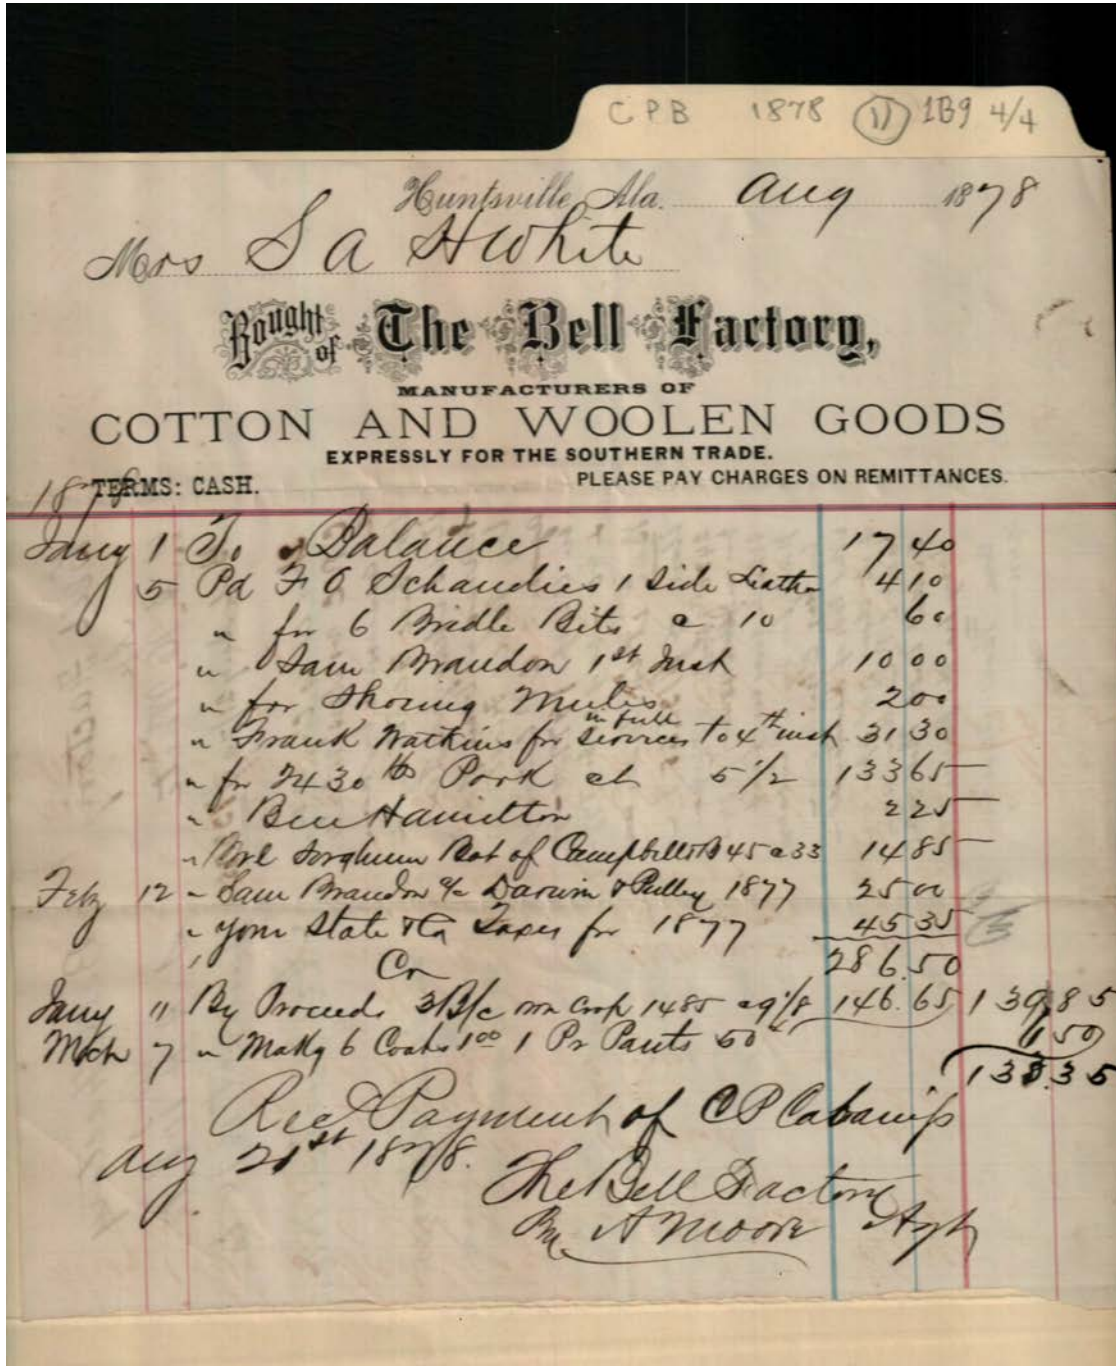 CPB 1878 11 1B9 4/4
Huntsville, Ala. Aug 1878
Mrs S A H White
Bought of The Bell Factory,
MANUFACTURERS OF
COTTON AND WOOLEN GOODS
EXPRESSLY FOR THE SOUTHERN TRADE.
TERMS: CASH. PLEASE PAY CHARGES ON REMITTANCES.
1878
Jany 1 To Balance 17 40
5 Pd F O Schandies 1 Side Leather 4 10
" for 6 Bridle Bits a 10 60
" Sam Brandon 1st Inst 10 00
" for Shoeing Mules 2 00
" Frank Watkins for Services in full to 4th inst 31 30
" for 2430 lbs Pork at 5 1/2 133 65
" Ben Hamilton 2 25
" Brl Sorghum Bot of Campbell 45 a 33 14 85
Feby 12 " Sam Brandon a/c Darwin & Pulley 1877 25 00
" your State & Co Taxes for 1877 45 35
286.50
Cr
Jany 11 By Proceeds 3 B/c 1485 a 9 7/8 146.65 139 85
Mch 7 " Makg 6 Coats 1 00 1 Pr Pants 50 1 50
138.35
Recd Payment of C P Cabaniss
Aug 21st 1878.
The Bell Factory
By A Moore Agt